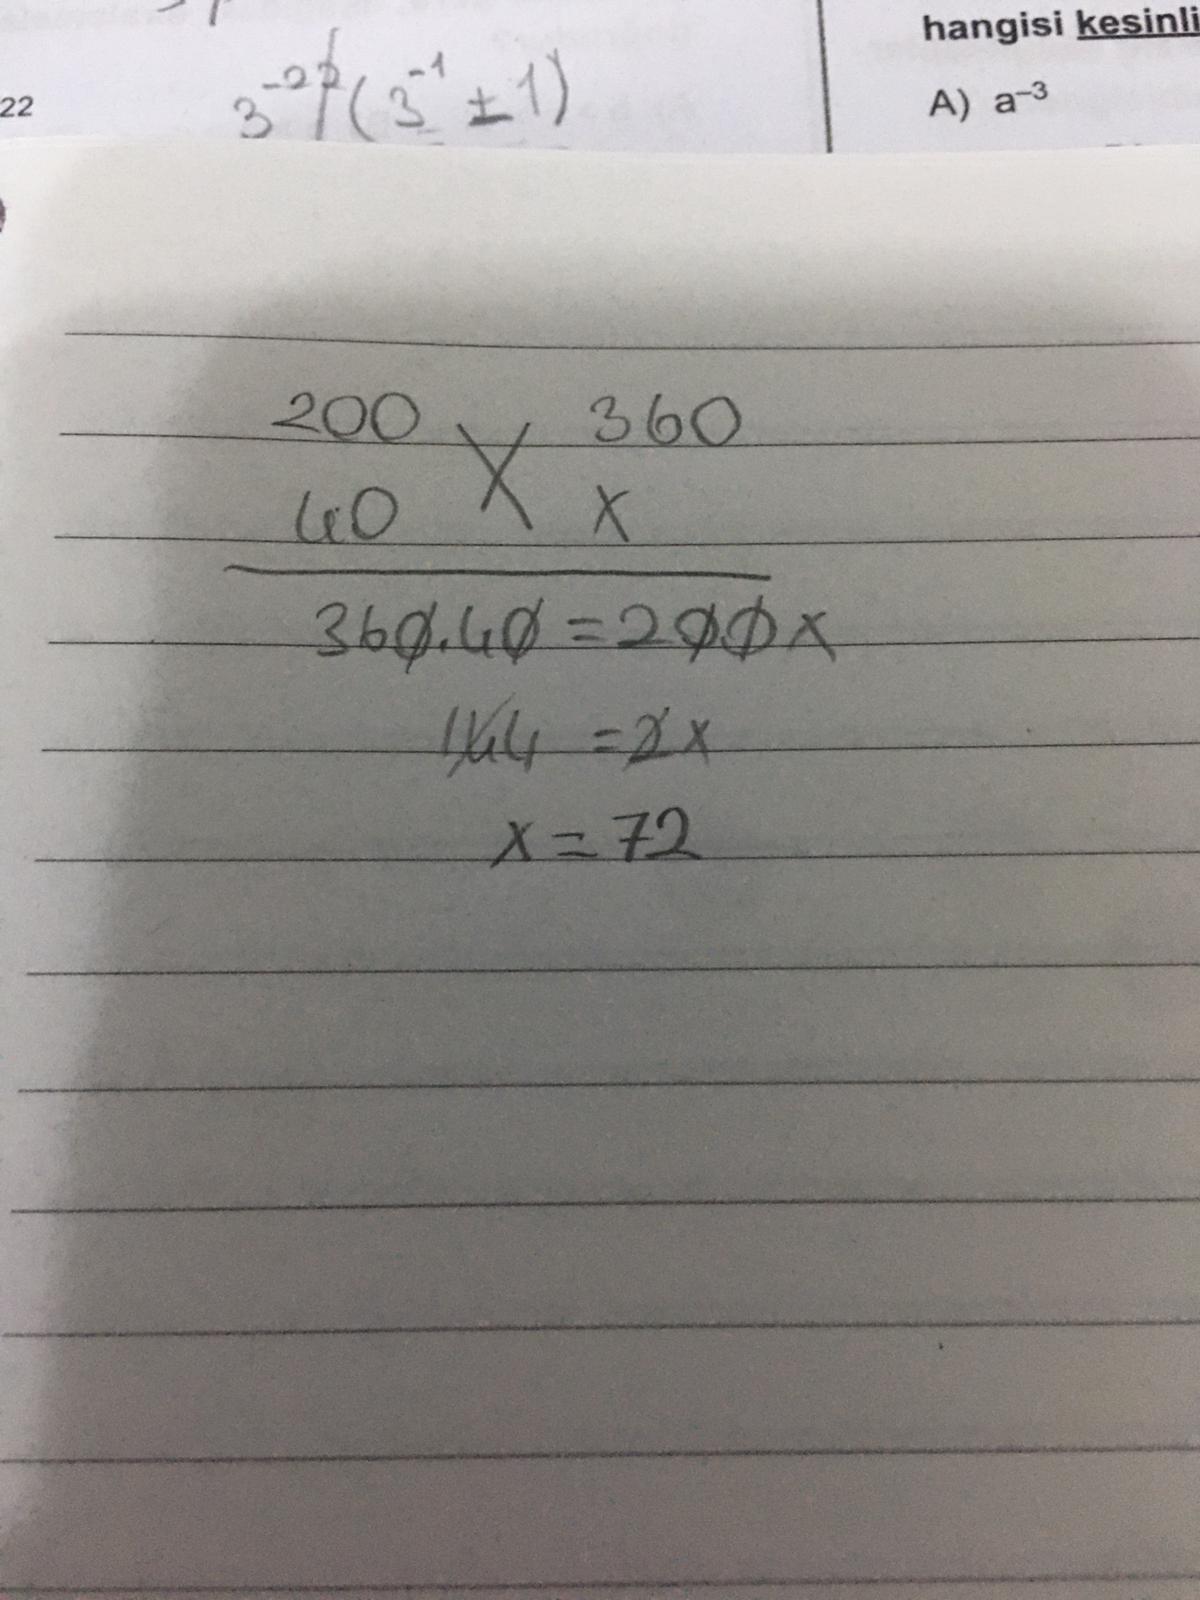 hangisi kesinli
22
3⁻²ᵖ(3⁻¹ ± 1)
A) a⁻³
200 X 360
40 x
360.40 = 200x
144 = 2x
x = 72